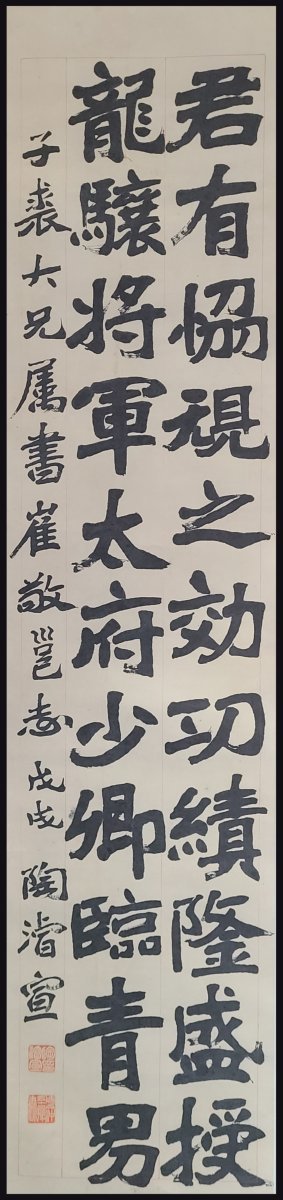 君有恊規之効功績隆盛授
龍驤將軍太府少卿臨青男
子裘大兄属書崔敬邕志戊戌陶濬宣